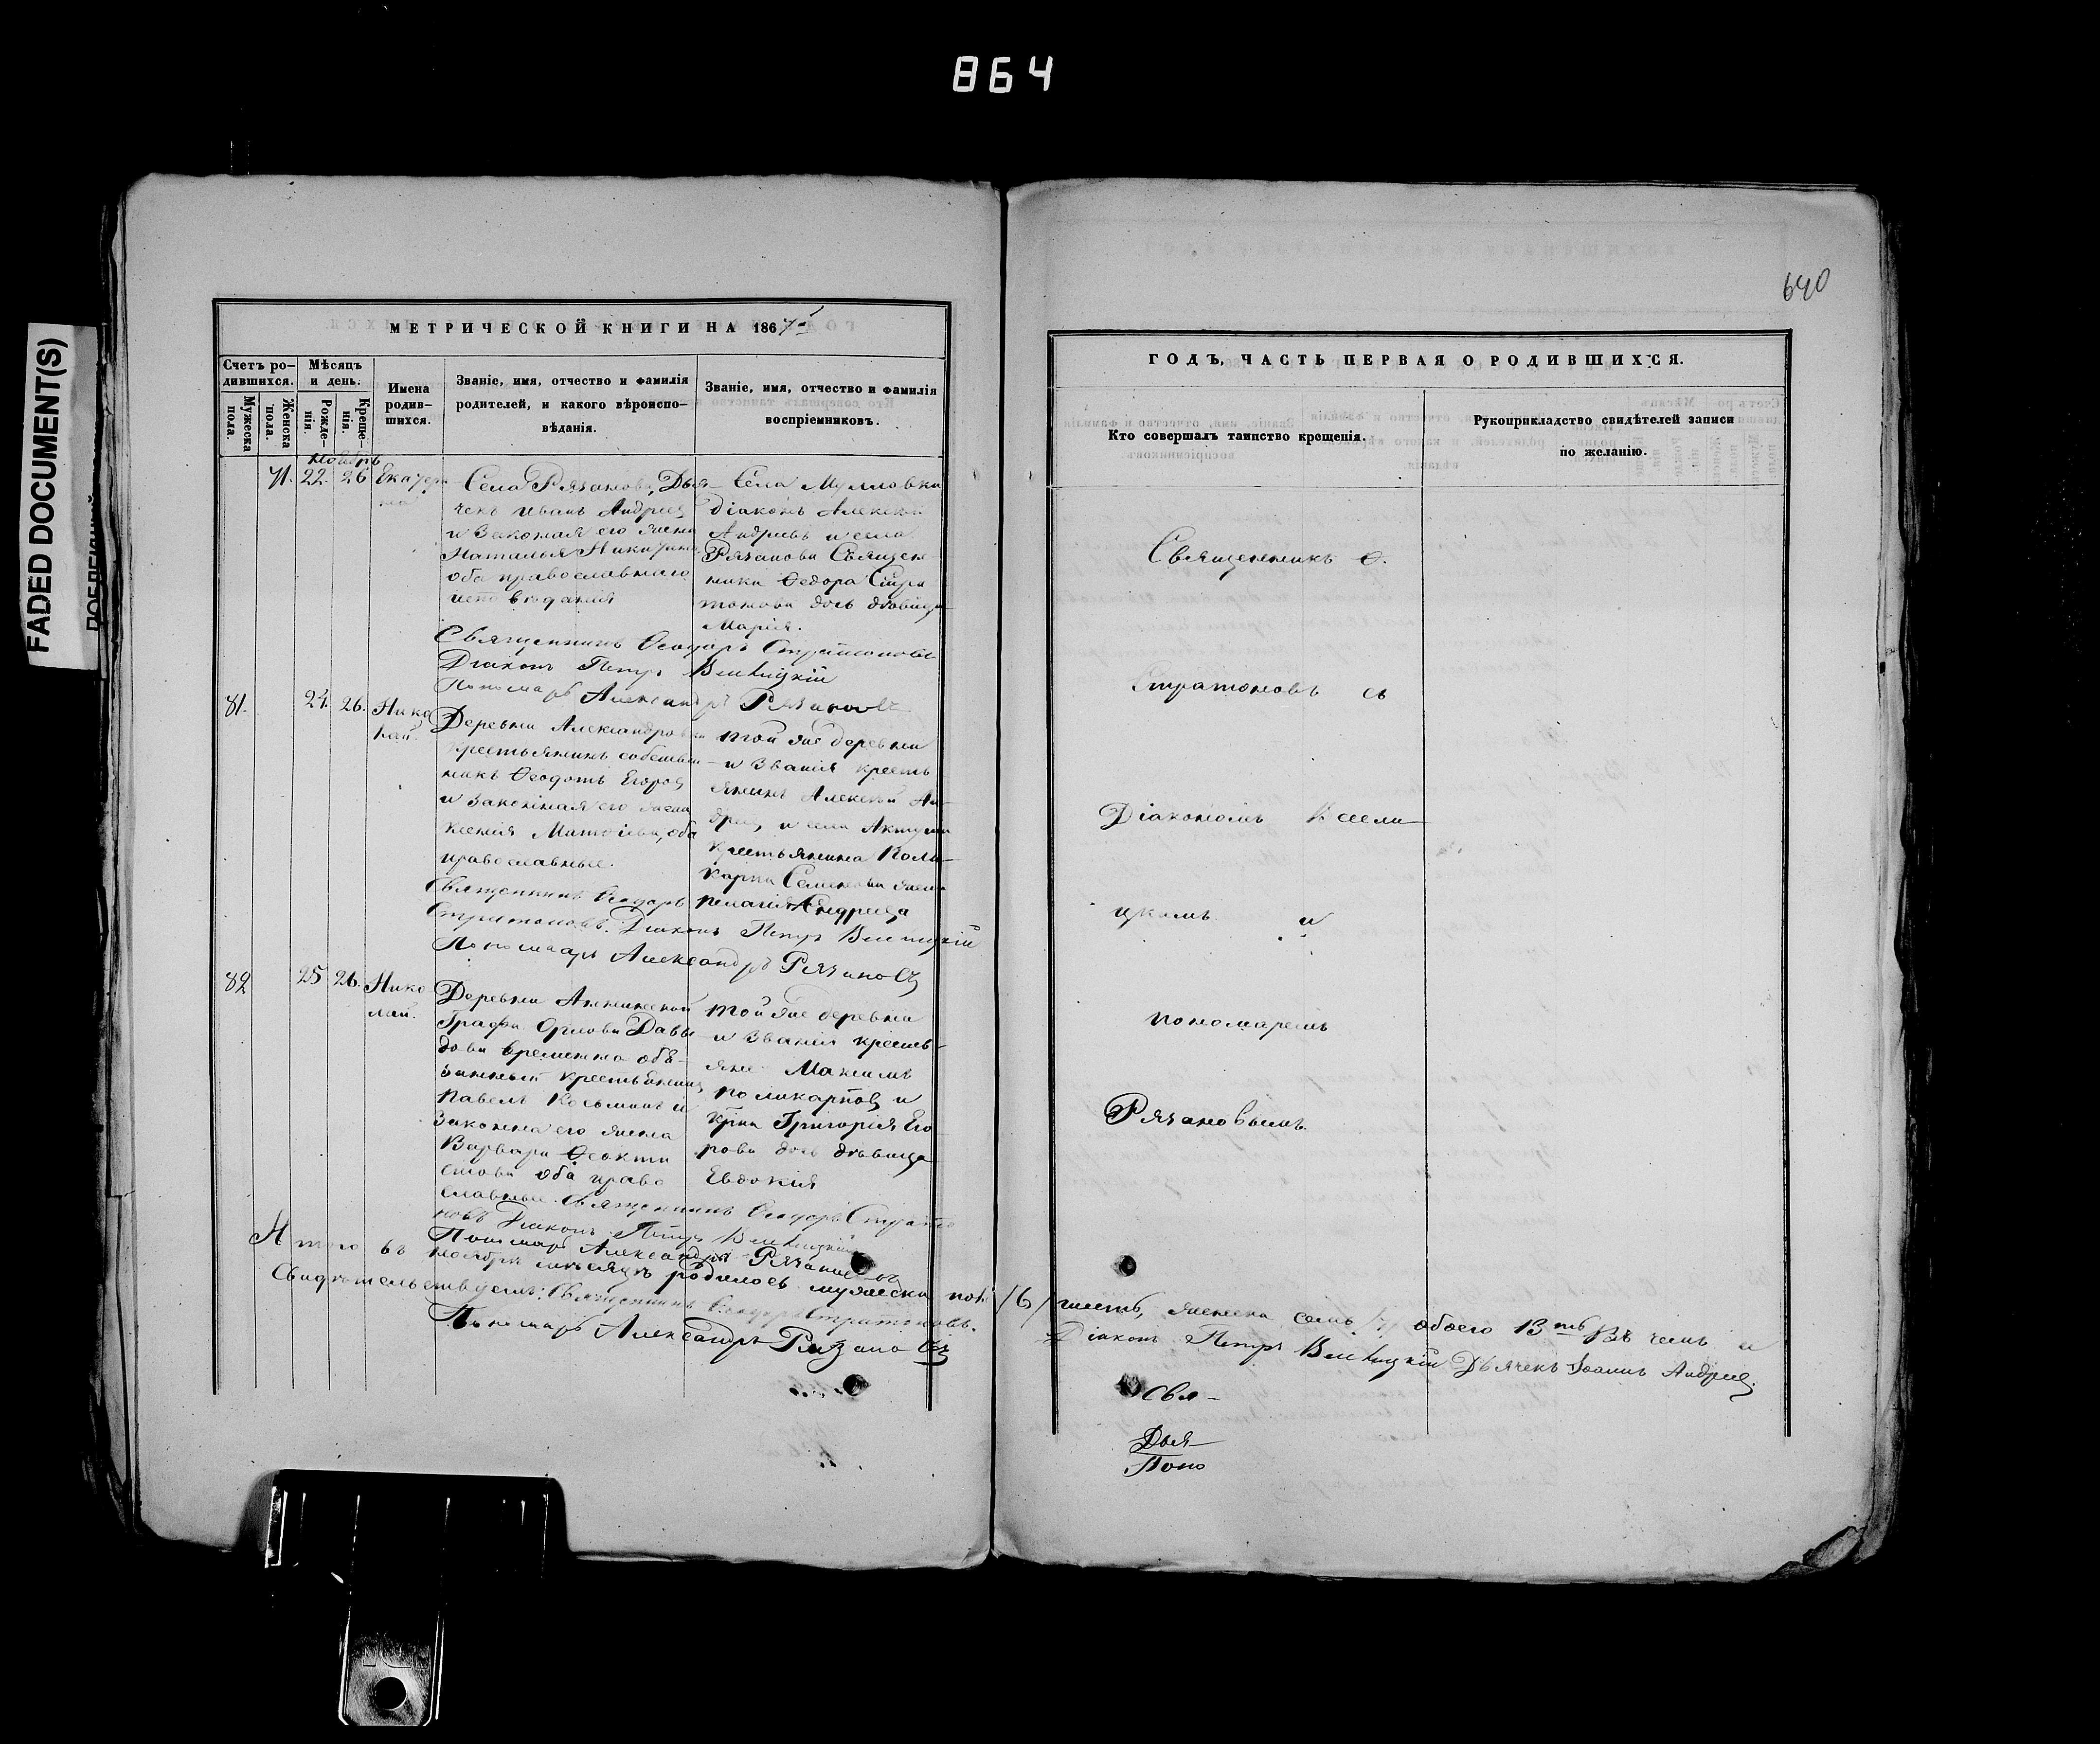 864
FADED DOCUMENT(S)
640
МЕТРИЧЕСКОЙ КНИГИ НА 1867
Счетъ ро-
дившихся.
Мужеска
пола.
Женска
пола.
Мѣсяцъ
и день.
Рожде-
нія.
Креще-
нія.
Имена
родив-
шихся.
Званіе, имя, отчество и фамилія
родителей, и какого вѣроиспо-
вѣданія.
Званіе, имя, отчество и фамилія
воспріемниковъ.
Ноябрь
71. 22. 26 Екатери
на
Села Рязанова, Дья-
чекъ Иванъ Андреевъ
и Законная его жена
Наталья Никитина
оба православнаго
исповѣданія
Села Мулловки
Діаконъ Алексѣй
Андреевъ и села
Рязанова Священ
ника Ѳедора Стра
тонова дочь дѣвица
Марія.
Священникъ Ѳеодоръ Стратоновъ
Діаконъ Петръ
Пономарь Александръ Рязановъ
81. 24. 26. Нико
лай.
Деревни Александровки
крестьянинъ собствен
никъ Ѳеодотъ Егоровъ
и Законная его жена
Ксенія Матвіева, оба
православные.
той же деревни
и званія кресть
янинъ Алексѣй Ан-
дреевъ, и села
крестьянина Поли-
карпа Семенова жена
Пелагія Андреева
Священникъ Ѳеодоръ
Стратоновъ. Діаконъ Петръ
Пономарь Александръ Рязановъ
82 25 26. Нико
лай.
Деревни Аннинской
Графа Орлова Давы
дова временно обя-
занный крестьянинъ
Павелъ Косьминъ и
Законна его жена
Варвара Ѳеокти
стова оба право
славные.
той же деревни
и званія кресть-
яне Максимъ
Поликарповъ и
кр-на Григорія Его
рова дочь дѣвица
Евдокія
Священникъ Ѳеодоръ Страто
новъ Діаконъ Петръ
Пономарь Александръ Рязановъ
Итого въ ноябрѣ мѣсяцѣ родилось мужеска пола /6/ шесть, женска семь /7/ обоего 13ть Въ чемъ и
Свидѣтельствуемъ: Священникъ Ѳеодоръ Стратоновъ. Діаконъ Петръ Дьячекъ Іоаннъ Андреевъ.
Пономарь Александръ Рязановъ
ГОДЪ, ЧАСТЬ ПЕРВАЯ О РОДИВШИХСЯ.
Кто совершалъ таинство крещенія.
Рукоприкладство свидѣтелей записи
по желанію.
Священникъ Ѳ.
Стратоновъ съ
Діакономъ
цкимъ и
пономаремъ
Рязановымъ.
Свя-
Дья-
Поно